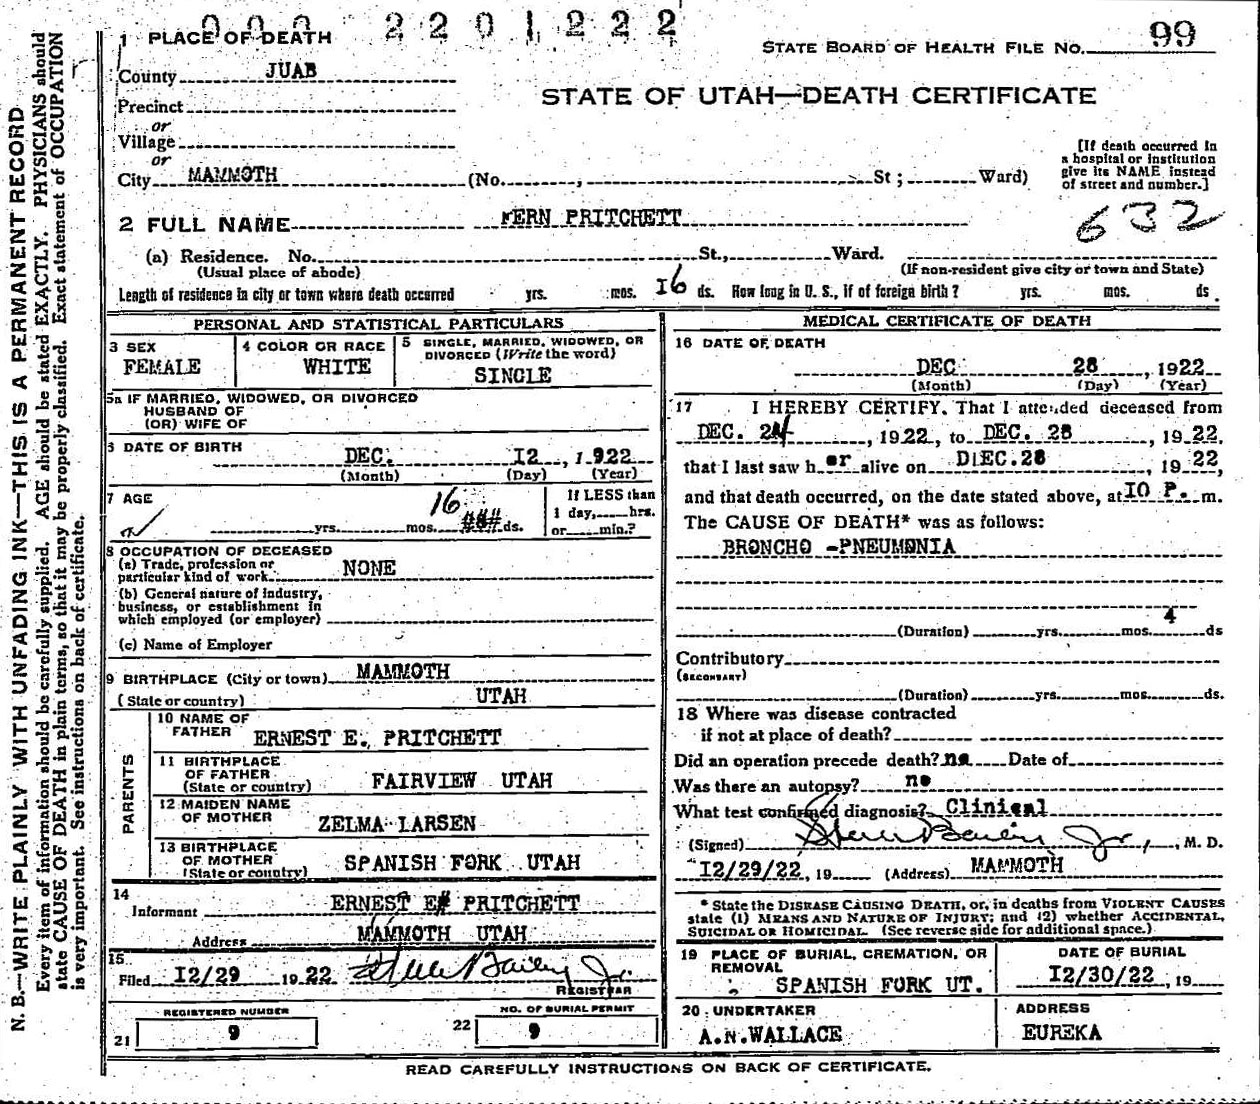 0 0 0 2 2 0 1 2 2 2
1 PLACE OF DEATH
STATE BOARD OF HEALTH FILE NO. 99
County JUAB
STATE OF UTAH—DEATH CERTIFICATE
Precinct
or
Village
or
City MAMMOTH (No. , St ; Ward)
[If death occurred in
a hospital or institution
give its NAME instead
of street and number.]
2 FULL NAME FERN PRITCHETT
632
(a) Residence. No. St., Ward.
(Usual place of abode) (If non-resident give city or town and State)
Length of residence in city or town where death occurred yrs. mos. 16 ds. How long in U. S., if of foreign birth ? yrs. mos. ds.
PERSONAL AND STATISTICAL PARTICULARS
3 SEX
FEMALE
4 COLOR OR RACE
WHITE
5 SINGLE, MARRIED, WIDOWED, OR
DIVORCED (Write the word)
SINGLE
5a IF MARRIED, WIDOWED, OR DIVORCED
HUSBAND OF
(OR) WIFE OF
6 DATE OF BIRTH
DEC. I2 , 1922
(Month) (Day) (Year)
7 AGE
yrs. mos. 16 ds.
If LESS than
1 day, hrs.
or min.?
8 OCCUPATION OF DECEASED
(a) Trade, profession or
particular kind of work NONE
(b) General nature of industry,
business, or establishment in
which employed (or employer)
(c) Name of Employer
9 BIRTHPLACE (City or town) MAMMOTH
(State or country) UTAH
PARENTS
10 NAME OF
FATHER ERNEST E. PRITCHETT
11 BIRTHPLACE
OF FATHER
(State or country) FAIRVIEW UTAH
12 MAIDEN NAME
OF MOTHER ZELMA LARSEN
13 BIRTHPLACE
OF MOTHER
(State or country) SPANISH FORK UTAH
14
Informant ERNEST E PRITCHETT
Address MAMMOTH UTAH
15
Filed I2/29 19 22 Steele Bailey Jr.
REGISTRAR
REGISTERED NUMBER
21 9
NO. OF BURIAL PERMIT
22 9
MEDICAL CERTIFICATE OF DEATH
16 DATE OF DEATH
DEC 28 , 1922
(Month) (Day) (Year)
17 I HEREBY CERTIFY, That I attended deceased from
DEC. 24 , 1922, to DEC. 28 , 19 22,
that I last saw h er alive on DIEC.28 , 19 22,
and that death occurred, on the date stated above, at I0 P. m.
The CAUSE OF DEATH* was as follows:
BRONCHO -PNEUMONIA
(Duration) yrs. mos. 4 ds
Contributory
(SECONDARY)
(Duration) yrs. mos. ds.
18 Where was disease contracted
if not at place of death?
Did an operation precede death? no Date of
Was there an autopsy? no
What test confirmed diagnosis? Clinical
(Signed) Steele Bailey Jr., M. D.
I2/29/22, 19 (Address) MAMMOTH
* State the DISEASE CAUSING DEATH, or, in deaths from VIOLENT CAUSES
state (1) MEANS AND NATURE OF INJURY; and (2) whether ACCIDENTAL,
SUICIDAL OR HOMICIDAL. (See reverse side for additional space.)
19 PLACE OF BURIAL, CREMATION, OR
REMOVAL
SPANISH FORK UT.
DATE OF BURIAL
I2/30/22 , 19
20 UNDERTAKER
A.N.WALLACE
ADDRESS
EUREKA
READ CAREFULLY INSTRUCTIONS ON BACK OF CERTIFICATE.
N. B.—WRITE PLAINLY WITH UNFADING INK—THIS IS A PERMANENT RECORD
Every item of information should be carefully supplied. AGE should be stated EXACTLY. PHYSICIANS should
state CAUSE OF DEATH in plain terms, so that it may be properly classified. Exact statement of OCCUPATION
is very important. See instructions on back of certificate.